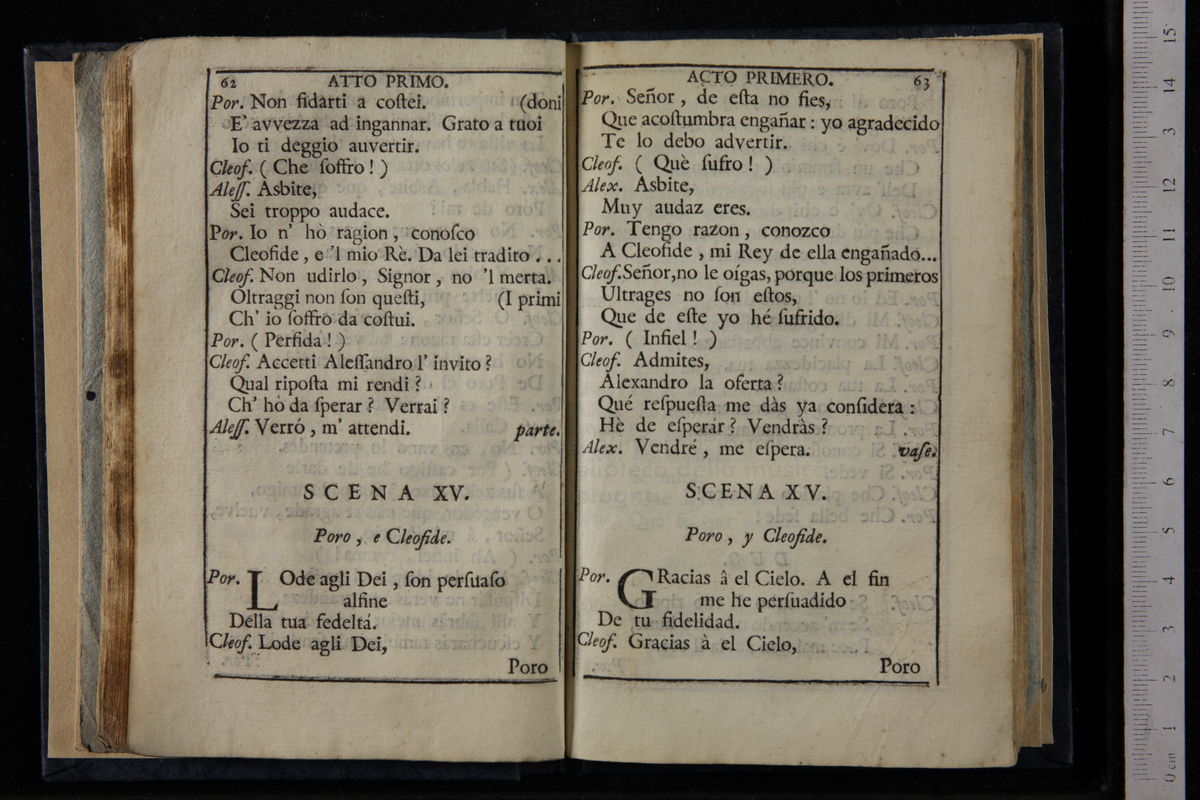 62 ATTO PRIMO.
Por. Non fidarti a coſtei. (doni
E' avvezza ad ingannar. Grato a tuoi
Io ti deggio auvertir.
Cleof. ( Che ſoffro ! )
Aleſſ. Asbite,
Sei troppo audace.
Por. Io n' hò ragion, conoſco
Cleofide, e 'l mio Rè. Da lei tradito . . .
Cleof. Non udirlo, Signor, no 'l merta.
Oltraggi non ſon queſti, (I primi
Ch' io ſoffrò da coſtui.
Por. ( Perfida ! )
Cleof. Accetti Aleſſandro l' invito ?
Qual ripoſta mi rendi ?
Ch' hò da ſperar ? Verrai ?
Aleſſ. Verró, m' attendi. parte.
SCENA XV.
Poro, e Cleofide.
Por. LOde agli Dei, ſon perſuaſo
alfine
Della tua fedeltá.
Cleof. Lode agli Dei,
Poro
ACTO PRIMERO. 63
Por. Señor, de eſta no fies,
Que acoſtumbra engañar : yo agradecido
Te lo debo advertir.
Cleof. ( Què ſufro ! )
Alex. Asbite,
Muy audaz eres.
Por. Tengo razon, conozco
A Cleofide, mi Rey de ella engañado...
Cleof. Señor, no le oígas, porque los primeros
Ultrages no ſon eſtos,
Que de eſte yo hé ſufrido.
Por. ( Infiel ! )
Cleof. Admites,
Alexandro la oferta ?
Qué reſpueſta me dàs ya conſidera :
Hè de eſperar ? Vendràs ?
Alex. Vendré, me eſpera. vaſe.
SCENA XV.
Poro, y Cleofide.
Por. GRacias â el Cielo. A el fin
me he perſuadido
De tu fidelidad.
Cleof. Gracias à el Cielo,
Poro
15
14
13
12
11
10
9
8
7
6
5
4
3
2
1
0 cm